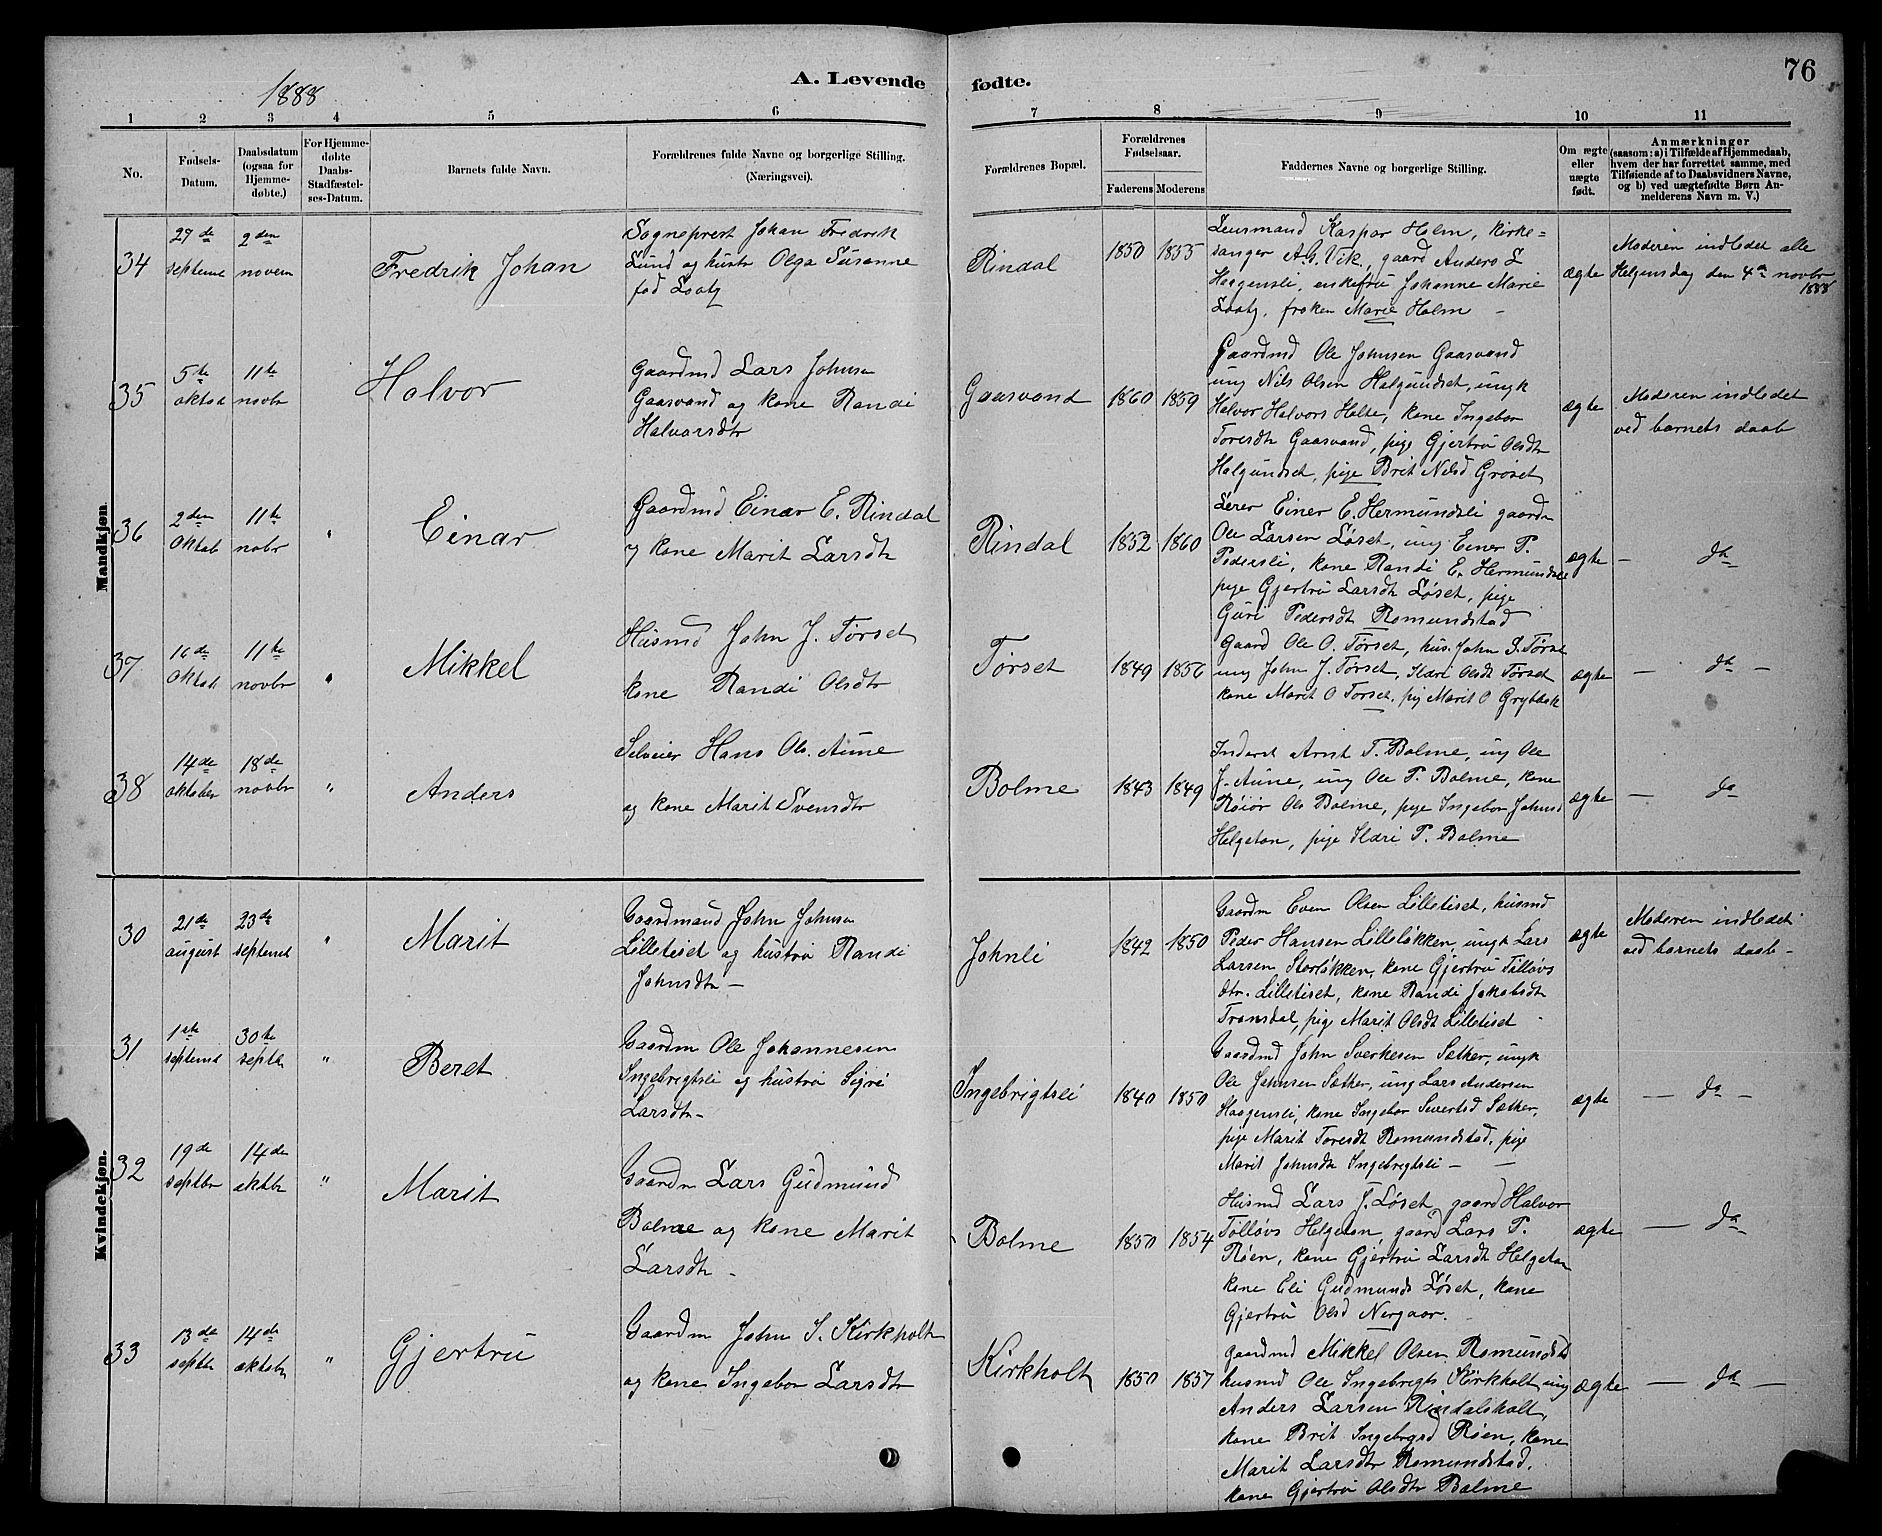 1888
A. Levende fødte.
76
1 2 3 4 5 6 7 8 9 10 11
No.
Fødsels-Datum.
Daabsdatum (ogsaa for Hjemme-døbte.)
For Hjemme-døbte Daabs-Stadfæstel-ses-Datum.
Barnets fulde Navn.
Forældrenes fulde Navne og borgerlige Stilling.
(Næringsvei).
Forældrenes Bopæl.
Forældrenes Fødselsaar.
Faderens Moderens
Faddernes Navne og borgerlige Stilling.
Om ægte eller uægte født.
Anmærkninger
(saasom: a) i Tilfælde af Hjemmedaab,
hvem der har forrettet samme, med
Tilføiende af to Daabsvidners Navne,
og b) ved uægtefødte Børn An-
melderens Navn m. V.)
Mandkjøn.
34
29de septemt
2den novem
Fredrik Johan
Sogneprest Johan Fredrik
Lund og hustr Olga Susanne
fød Lootz
Rindal
1850 1855
Lensmand Kaspar Holm, kirke=
sanger A.G. Vik, gaard Anders L
Haagensli, enkefru Johanne Marie
Lootz, frøken Marie Holm –
ægte
Moderen indledet alle
Helgensdag den 4de novbr
1888
35
5te oktob
11te novbr
Halvor
Gaardmd Lars Johnsen
Gaasvand og kone Randi
Halvorsdtr
Gaasvand
1860 1859
Gaardmd Ole Johnsen Gaasvand
ung Nils Olsen Halgundset, ungk
Halvor Halvors Holte, kone Ingebor
Toresdtr Gaasvand, pige Gjertru Olsdtr
Halgundset, pige Brit Nilsd Grøset
ægte
Moderen indledet
ved barnets daab
36
2den Oktob
11te nobr
"
Einar
Gaardmd Einar E. Rindal
og kone Marit Larsdtr
Rindal
1852 1860
Lærer Einer E. Hermundsli gaardm
Ole Larsen Løset, ung Einer P.
Pedersli, kone Randi E. Hermundsli
pige Gjertru Larsdtr Løset, pige
Guri Pedersdt Romundstad
ægte
– do
37
16de Oktob
11te novbr
"
Mikkel
Husmd John J. Tørset
kone Randi Olsdtr
Tørset
1849 1856
Gaard Ole O. Tørset, hus. John I. Tørset
ung John J. Tørset, Ildri Olsdt Tørset
kone Marit O Tørset, pig Marit O Grytbak
ægte
– do –
38
14de oktober
18de novbr
"
Anders
Selveier Hans Ols. Aune
og kone Marit Svensdtr
Bolme
1843 1849
Inderst Arnt T. Bolme, ung Ole
J. Aune, ung Ole P. Bolme, kone
Ols Bolme, pige Ingebor Johnsd
Helgeton, pige Ildri P. Bolme
ægte
– do
Kvindekjøn.
30
21de august
23de septemt
"
Marit
Gaardmand John Johnsen
Lilletiset og hustru Randi
Johnsdtr –
Johnli
1842 1850
Gaardm Even Olsen Lilletiset, husmd
Peder Hansen Lilleløkken, ungk Lars
Larsen Storløkken, kone Gjertru Tølløvs
dtr. Lilletiset, kone Randi Jakobsdtr
Tronsdal, pige Marit Olsdt Lilletiset
ægte
Moderen indledet
ved barnets daab –
31
1ste septemt
30te septbr
"
Beret
Gaardm Ole Johannesen
Ingebrigtsli og hustru Sigri
Larsdtr –
Ingebrigtsli
1840 1850
Gaardmd John Sverkesen Sæther, ungk
Ole Johnsen Sæther, ung Lars Andersen
Haagensli, kone Ingebor Sivertsd Sæther,
pige Marit Toresdt Romundstad, pige
Marit Johnsdtr Ingebrigtsli – –
ægte
– do –
32
19de septbr
14de oktbr
"
Marit
Gaardm Lars Gudmund
Bolme og kone Marit
Larsdtr –
Bolme
1850 1854
Husmd Lars J. Løset, gaard Halvor
Tølløvs Helgeton, gaard Lars P.
Røen, kone Gjertru Larsdtr Helgeton
kone Eli Gudmunds Løset, kone
Gjertru Olsd Nergaar.
ægte
– do
33
13de septbr
14de oktobr
"
Gjertru
Gaardm John S. Kirkholt
og kone Ingebor Larsdtr
Kirkholt
1850 1857
gaardmd Mikkel Olsen Romundstd
husmd Ole Ingebrigts Kirkholt, ung
Anders Larsen Rindalsholt,
kone Brit Ingebrgsd Røen, kone
Marit Larsdtr Romundstad,
kone Gjertru Olsdtr Bolme
ægte
– do –